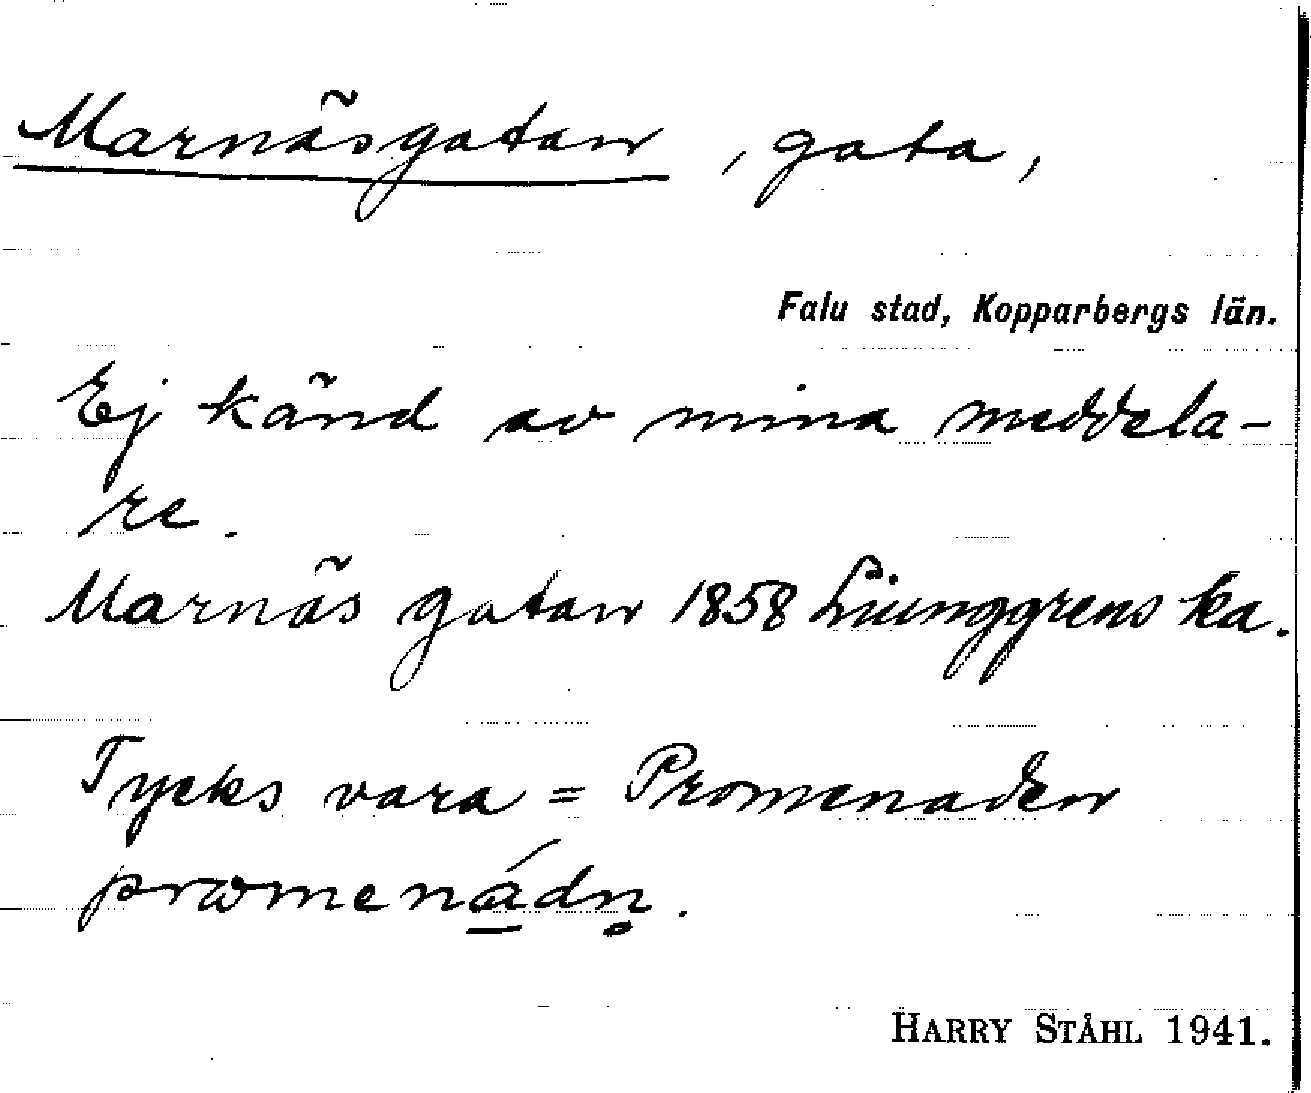 Marnäsgatan, gata,
Falu stad, Kopparbergs län.
Ej känd av mina meddela-
re.
Marnäs gatan 1858 Liunggrens ka.
Tycks vara = Promenaden
promenádn̥.
HARRY STÅHL 1941.